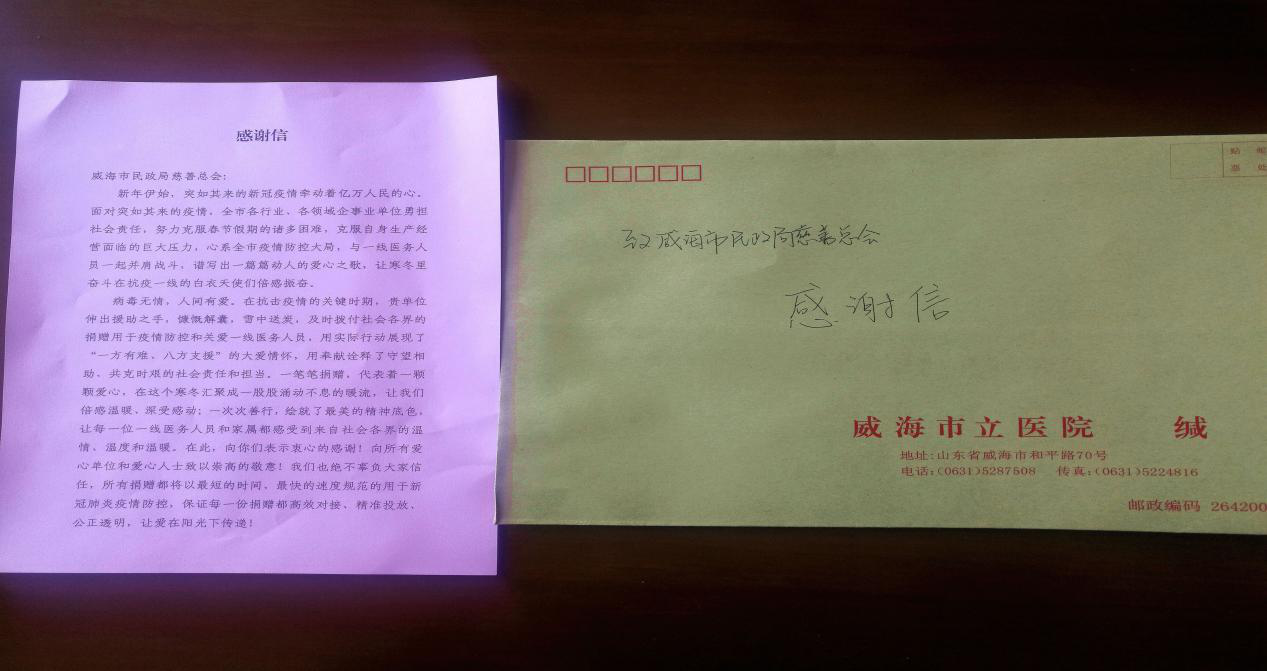 感谢信
威海市民政局慈善总会:
新年伊始，突如其来的新冠疫情牵动着亿万人民的心。
面对突如其来的疫情，全市各行业、各领域企事业单位勇担
社会责任，努力克服春节假期的诸多困难，克服自身生产经
营面临的巨大压力，心系全市疫情防控大局，与一线医务人
员一起并肩战斗，谱写出一篇篇动人的爱心之歌，让寒冬里
奋斗在抗疫一线的白衣天使们倍感振奋。
病毒无情，人间有爱。在抗击疫情的关键时期，贵单位
伸出援助之手，慷慨解囊，雪中送炭，及时拨付社会各界的
捐赠用于疫情防控和关爱一线医务人员，用实际行动展现了
“一方有难、八方支援”的大爱情怀，用奉献诠释了守望相
助、共克时艰的社会责任和担当。一笔笔捐赠，代表着一颗
颗爱心，在这个寒冬汇聚成一股股涌动不息的暖流，让我们
倍感温暖、深受感动；一次次善行，绘就了最美的精神底色，
让每一位一线医务人员和家属都感受到来自社会各界的温
情、温度和温暖。在此，向你们表示衷心的感谢！向所有爱
心单位和爱心人士致以崇高的敬意！我们也绝不辜负大家信
任，所有捐赠都将以最短的时间、最快的速度规范的用于新
冠肺炎疫情防控，保证每一份捐赠都高效对接、精准投放、
公正透明，让爱在阳光下传递！
贴 邮
票 处
致威海市民政局慈善总会
感谢信
威海市立医院 缄
地址:山东省威海市和平路70号
电话:(0631)5287508 传真:(0631)5224816
邮政编码 264200